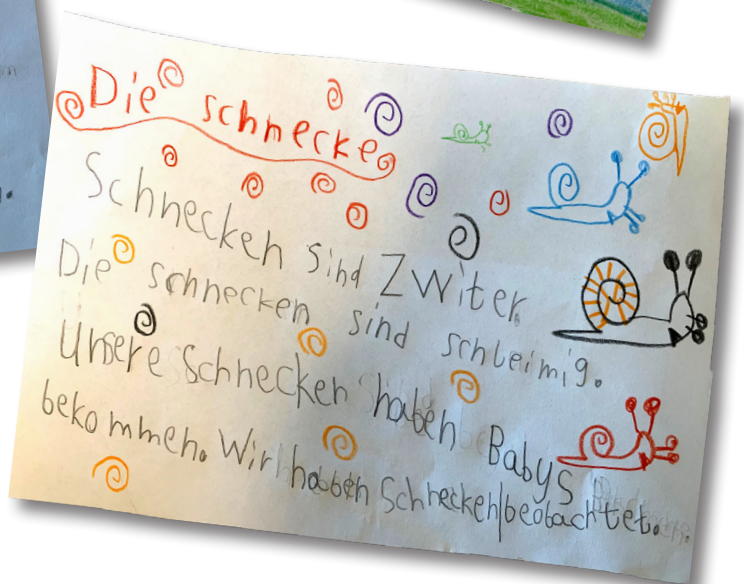 Die schnecke
Schnecken sind Zwiter.
Die schnecken sind schleimig.
Unsere Schnecken haben Babys
bekommen. Wir haben Schnecken beobachtet.